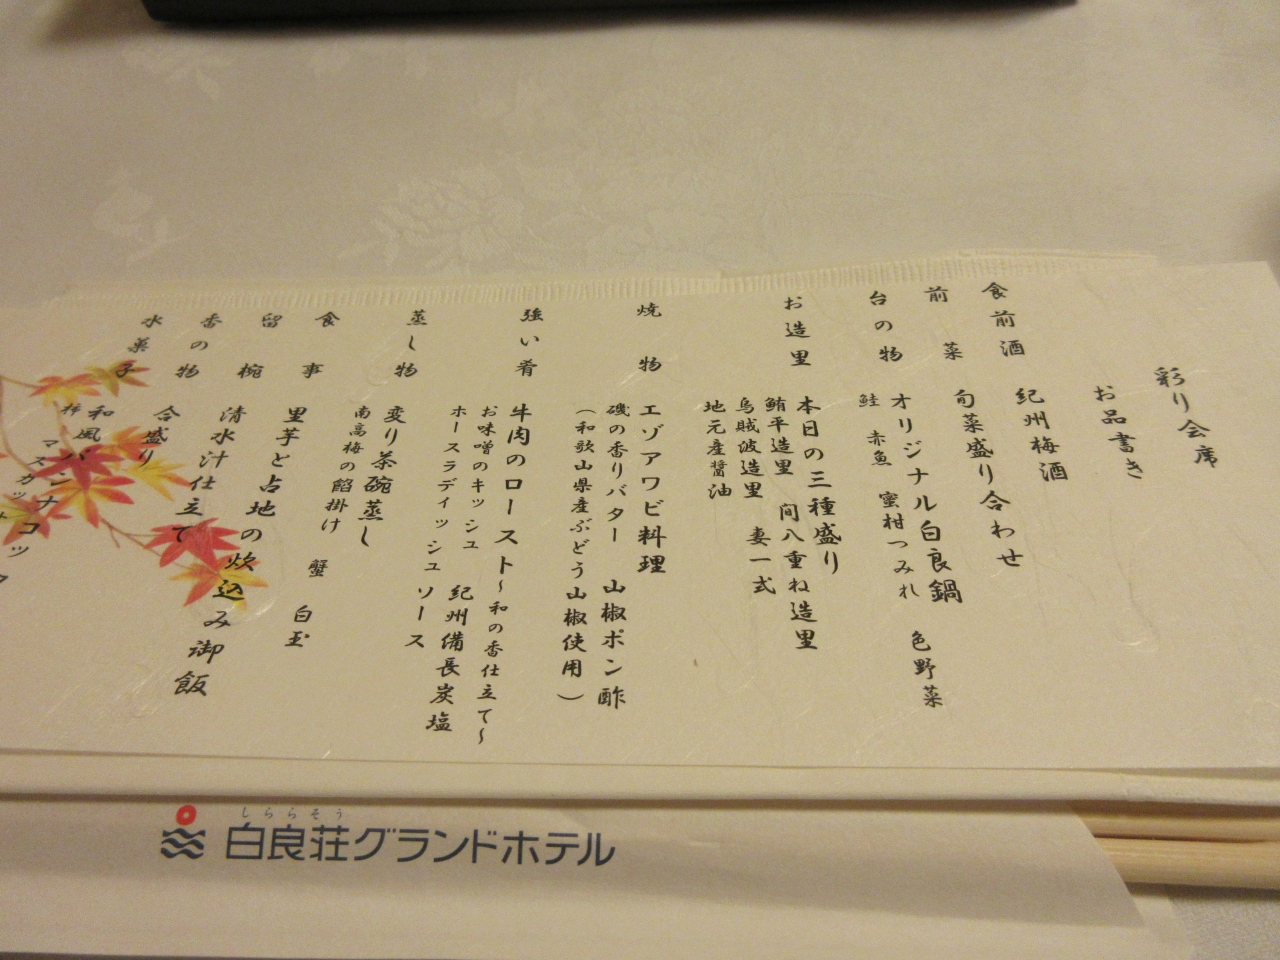 彩り会席
お品書き
食前酒 紀州梅酒
前菜 旬菜盛り合わせ
台の物 オリジナル白良鍋
鮭 赤魚 蜜柑つみれ 色野菜
お造里 本日の三種盛り
鮪平造里 間八重ね造里
烏賊波造里 妻一式
地元産醤油
焼物 エゾアワビ料理
磯の香りバター 山椒ポン酢
（和歌山県産ぶどう山椒使用）
強い肴 牛肉のロースト～和の香仕立て～
お味噌のキッシュ 紀州備長炭塩
ホースラディッシュソース
蒸し物 変り茶碗蒸し
南高梅の餡掛け 蟹 白玉
食事 里芋と占地の炊込み御飯
留椀 清水汁仕立て
香の物 合盛り
水菓子 和風パンナコッタ
柿 マスカット
しららそう
白良荘グランドホテル